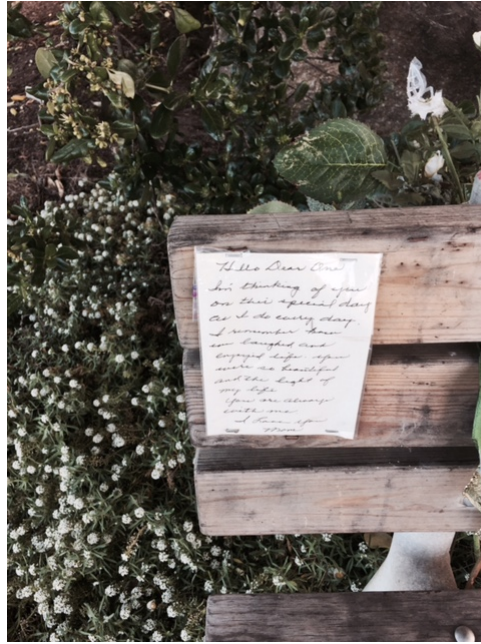 Hello Dear One
I'm thinking of you
on this special day
as I do every day.
I remember how
you laughed and
enjoyed life you
were so beautiful
and the light of
my life
You are always
with me
I Love you
Mom